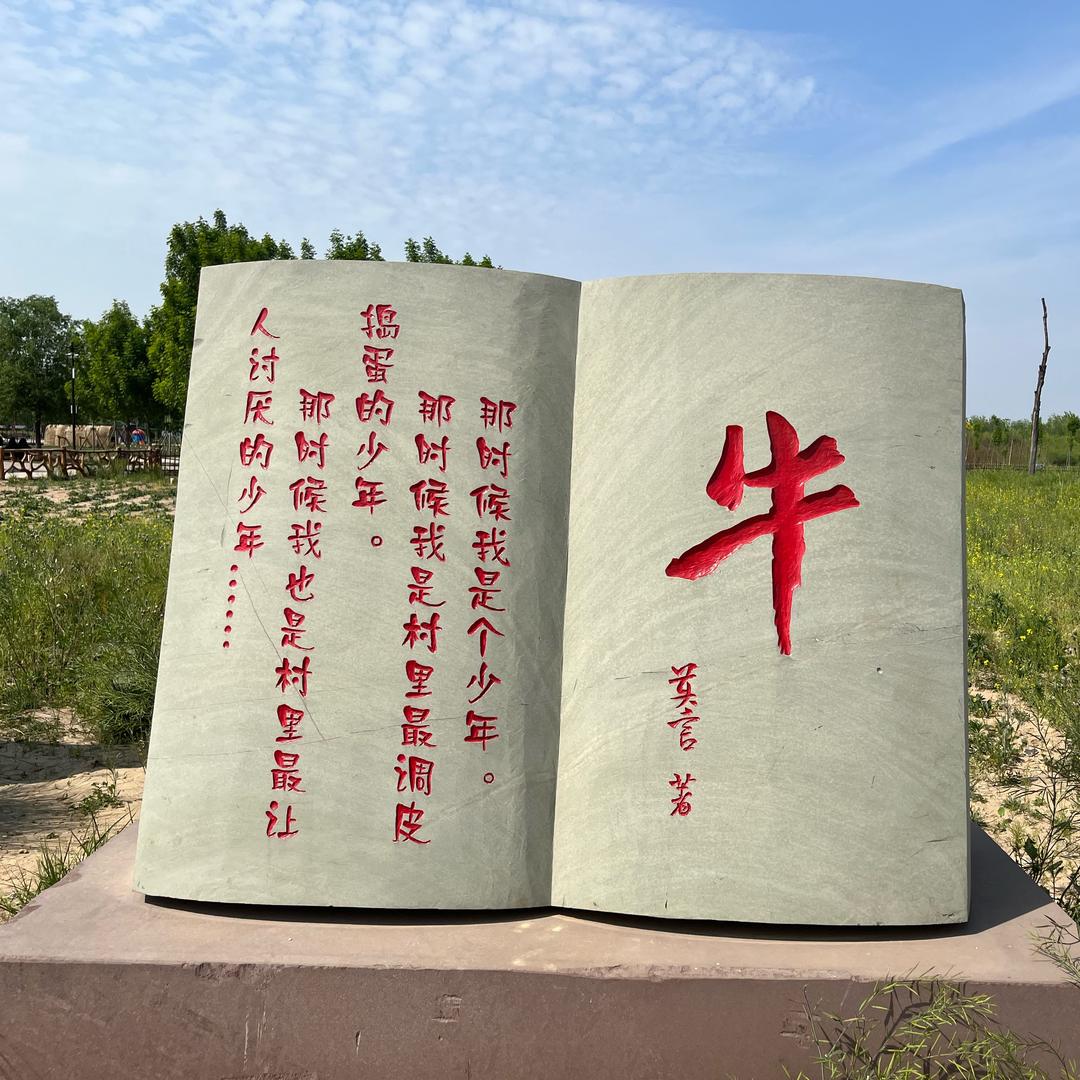 牛
莫言 著
那时候我是个少年。
那时候我是村里最调皮
捣蛋的少年。
那时候我也是村里最让
人讨厌的少年……